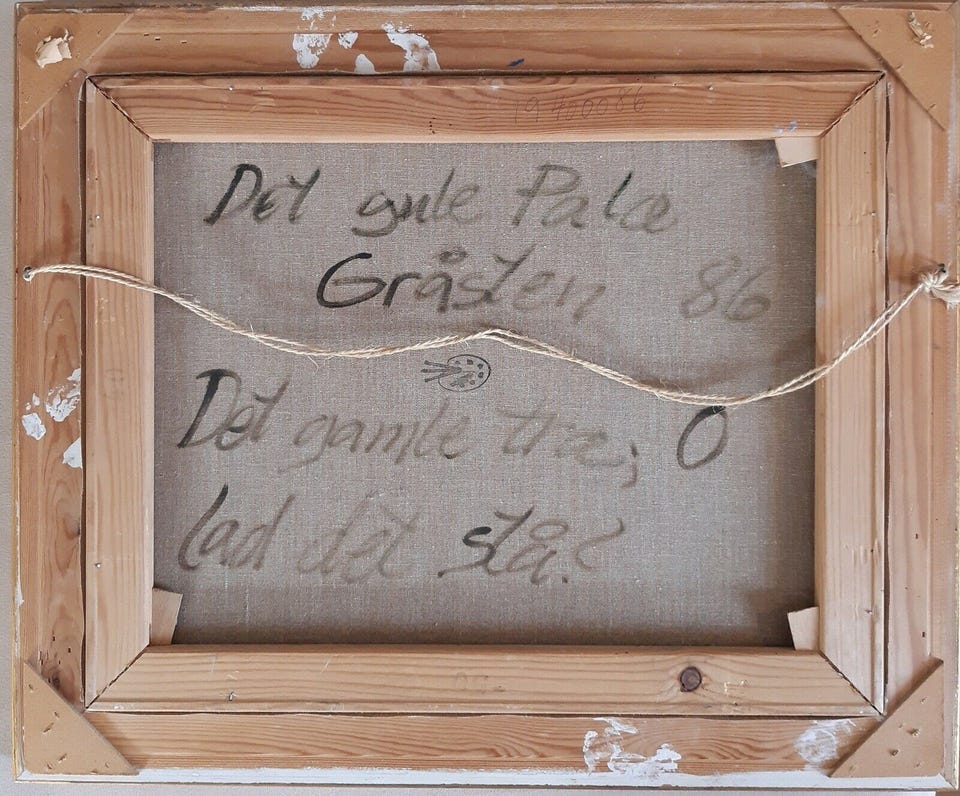 19400086
Det gule Palæ
Gråsten 86
Det gamle træ; O
lad det stå!